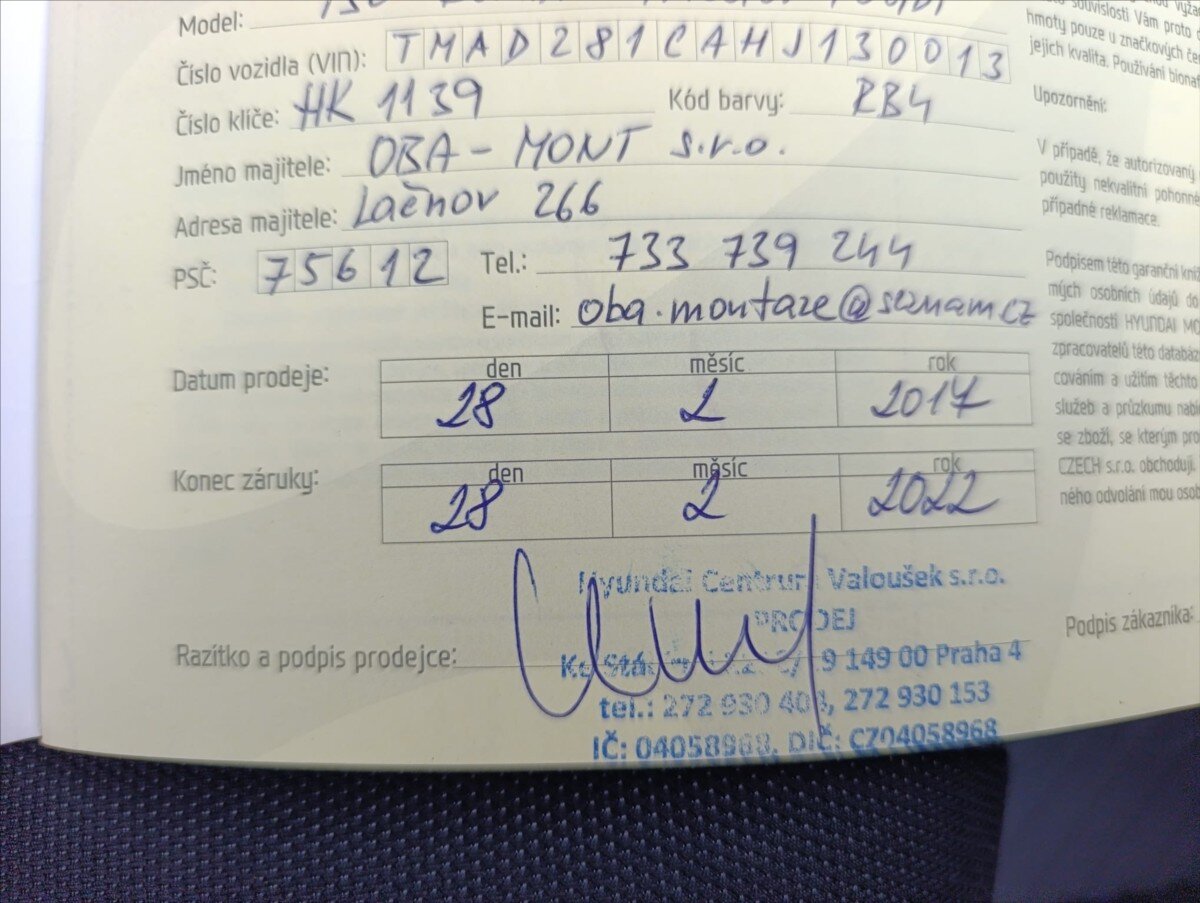 Model:
Číslo vozidla (VIN): TMAD281CAHJ130013
Číslo klíče: HK 1139 Kód barvy: RB4
Jméno majitele: OBA - MONT s.r.o.
Adresa majitele: Lačnov 266
PSČ: 75612 Tel.: 733 739 244
E-mail: oba.montaze@seznam.cz
den měsíc rok
Datum prodeje: 28 2 2017
den měsíc rok
Konec záruky: 28 2 2022
Hyundai Centrum Valoušek s.r.o.
PRODEJ
149 00 Praha 4
Razítko a podpis prodejce:
tel.: 272 930 408, 272 930 153
IČ: 04058968, DIČ: CZ04058968
souvislosti Vám proto
hmoty pouze u značkových
jejich kvalita. Používání
Upozornění:
V případě, že autorizovaný
použity nekvalitní pohonné
případné reklamace.
Podpisem této garanční
mých osobních údajů do
společnosti HYUNDAI
zpracovatelů této
cováním a užitím těchto
služeb a průzkumu
se zboží, se kterým
CZECH s.r.o. obchodují.
ného odvolání mou
Podpis zákazníka: